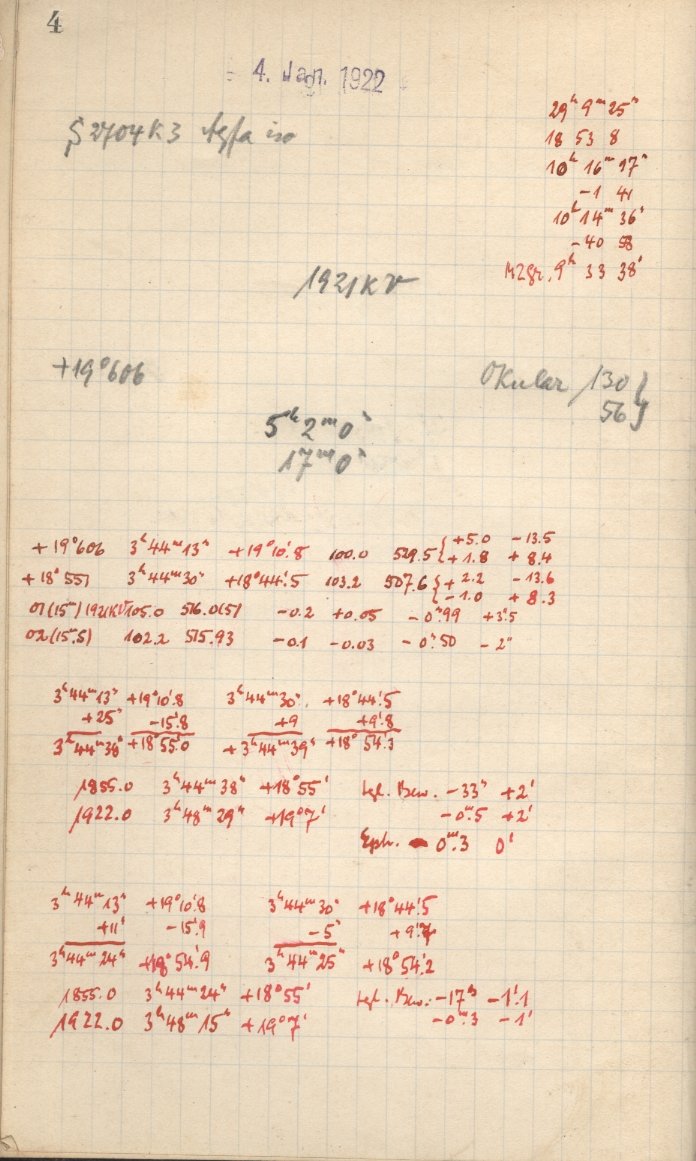 4
4. Jan. 1922
29ʰ 9ᵐ 25ˢ
18 53 8
10ʰ 16ᵐ 17ˢ
-1 41
10ʰ 14ᵐ 36ˢ
-40 58
9ʰ 33 38ˢ
2704 K3 Agfa iso
1921 KV
+19°606
Okular 130 }
56 }
5ʰ 2ᵐ 0ˢ
17ᵐ 0ˢ
+19°606 3ʰ44ᵐ13ˢ +19°10'.8 100.0 529.5 { +5.0 -13.5
+1.8 +8.4
+18°551 3ʰ44ᵐ30ˢ +18°44'.5 103.2 507.6 { +2.2 -13.6
-1.0 +8.3
01 (15ᵐ) 1921KV 105.0 516.0(5) -0.2 +0.05 -0ᵐ.99 +3".5
02 (15ᵐ.5) 102.2 515.93 -0.1 -0.03 -0ᵐ.50 -2"
3ʰ44ᵐ13ˢ +19°10'.8 3ʰ44ᵐ30ˢ +18°44'.5
+25ˢ -15'.8 +9 +9'.8
3ʰ44ᵐ38ˢ +18°55'.0 +3ʰ44ᵐ39ˢ +18°54'.3
1855.0 3ʰ44ᵐ38ˢ +18°55' tgl. Bew. -33ˢ +2'
1922.0 3ʰ48ᵐ29ˢ +19°7' -0ᵐ.5 +2'
Eph. 0ᵐ.3 0'
3ʰ44ᵐ13ˢ +19°10'.8 3ʰ44ᵐ30ˢ +18°44'.5
+11ˢ -15'.9 -5ˢ +9'.7
3ʰ44ᵐ24ˢ +18°54'.9 3ʰ44ᵐ25ˢ +18°54'.2
1855.0 3ʰ44ᵐ24ˢ +18°55' tgl. Bew.: -17ˢ -1'.1
1922.0 3ʰ48ᵐ15ˢ +19°7' -0ᵐ.3 -1'